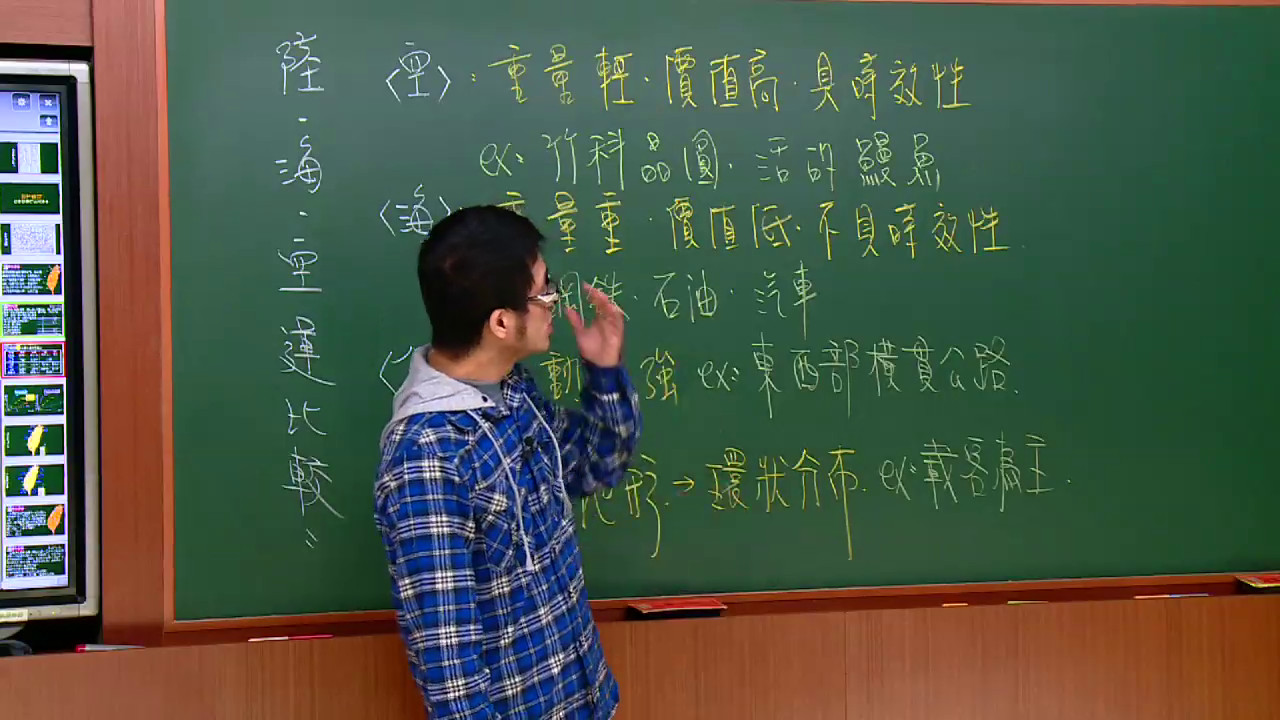 陸、海、空運比較"
〈空〉:重量輕、價值高、具時效性
ex:竹科晶圓、活的鰻魚
〈海〉:重量重、價值低、不具時效性.
鋼鐵、石油、汽車
動 強 ex:東西部橫貫公路.
地形.→環狀分布.ex:載客為主.